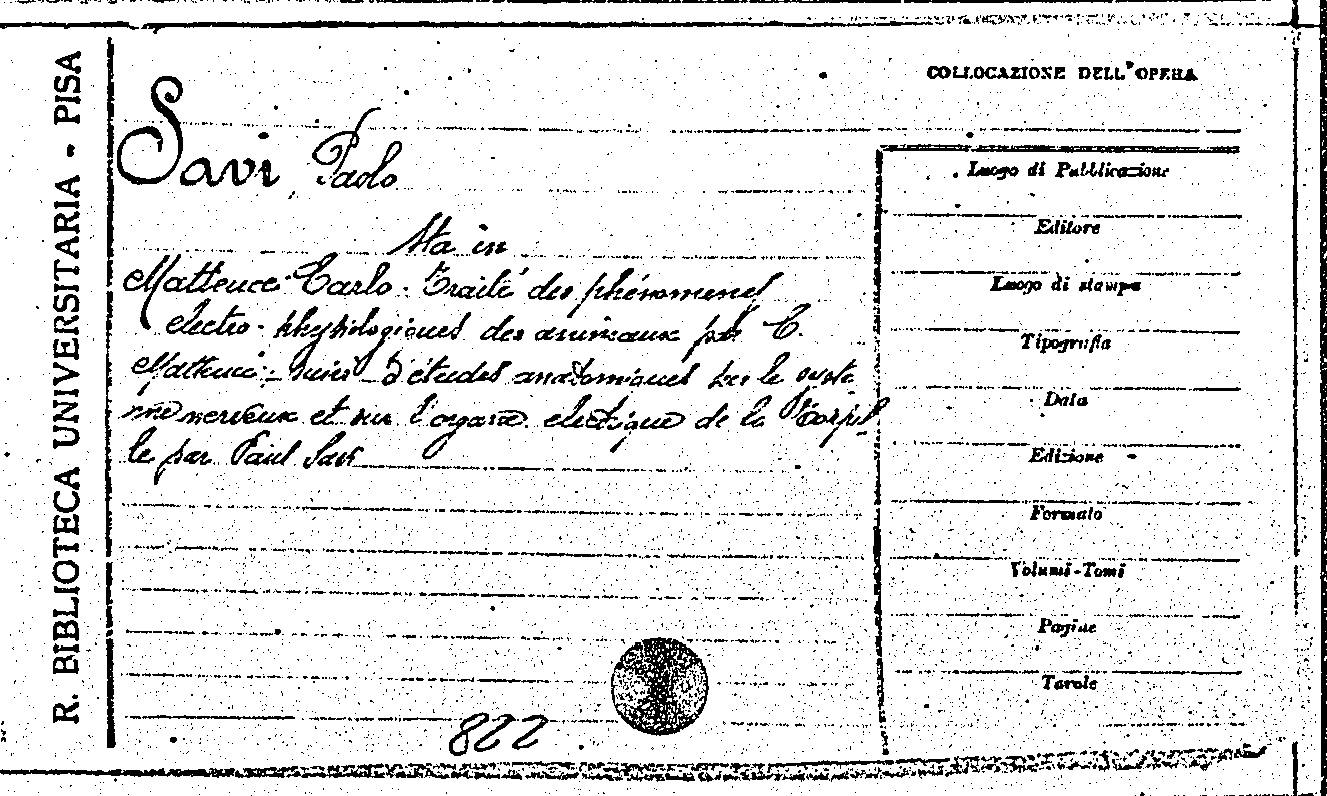 R. BIBLIOTECA UNIVERSITARIA - PISA
COLLOCAZIONE DELL'OPERA
Savi Paolo
Sta in
Matteucci Carlo - Traité des phénomenes
electro-physiologiques des animaux par C.
Matteucci - suivi d'études anatomiques sur le systè
me nerveux et sur l'organe electrique de la Torpil
le par Paul Savi
822
Luogo di Pubblicazione
Editore
Luogo di stampa
Tipografia
Data
Edizione
Formato
Volumi-Tomi
Pagine
Tavole